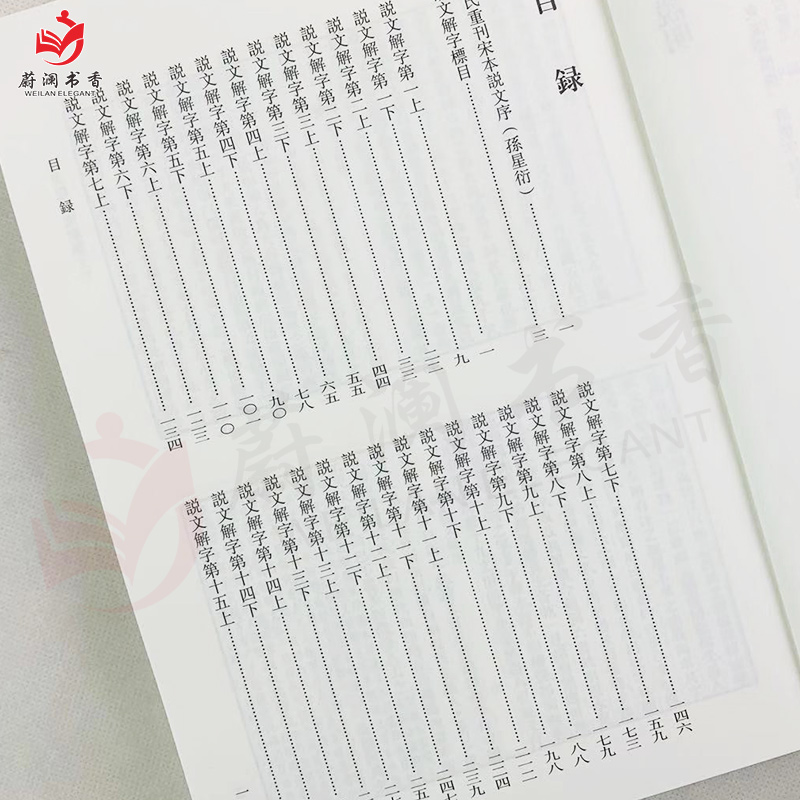 目録
氏重刊宋本説文序（孫星衍）……一
文解字標目……三
説文解字第一上……一
説文解字第一下……九
説文解字第二上……二二
説文解字第二下……三三
説文解字第三上……四四
説文解字第三下……五五
説文解字第四上……六五
説文解字第四下……七八
説文解字第五上……九〇
説文解字第五下……一〇一
説文解字第六上……一一〇
説文解字第六下……一二三
説文解字第七上……一三四
説文解字第七下……一四六
説文解字第八上……一五九
説文解字第八下……一七三
説文解字第九上……一七九
説文解字第九下……一八八
説文解字第十上……一九八
説文解字第十下……二一二
説文解字第十一上……二二四
説文解字第十一下……二三九
説文解字第十二上……二四七
説文解字第十二下
説文解字第十三上
説文解字第十三下
説文解字第十四上
説文解字第十四下
説文解字第十五上
目録
一
蔚澜书香
WEILAN ELEGANT
蔚澜书香